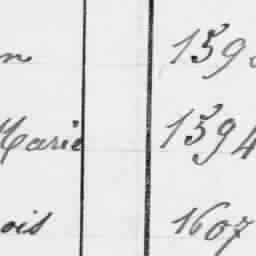 n 159
Marie 1594
ois 1607